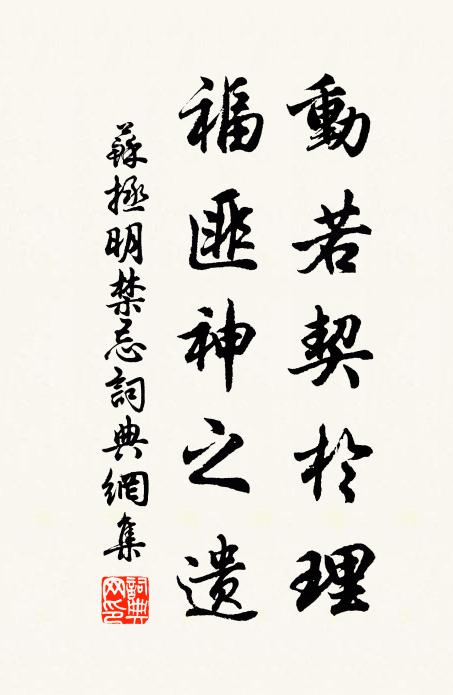 動若契於理
福匪神之遺
蘇拯明禁忌詞典網集
詞典
网印